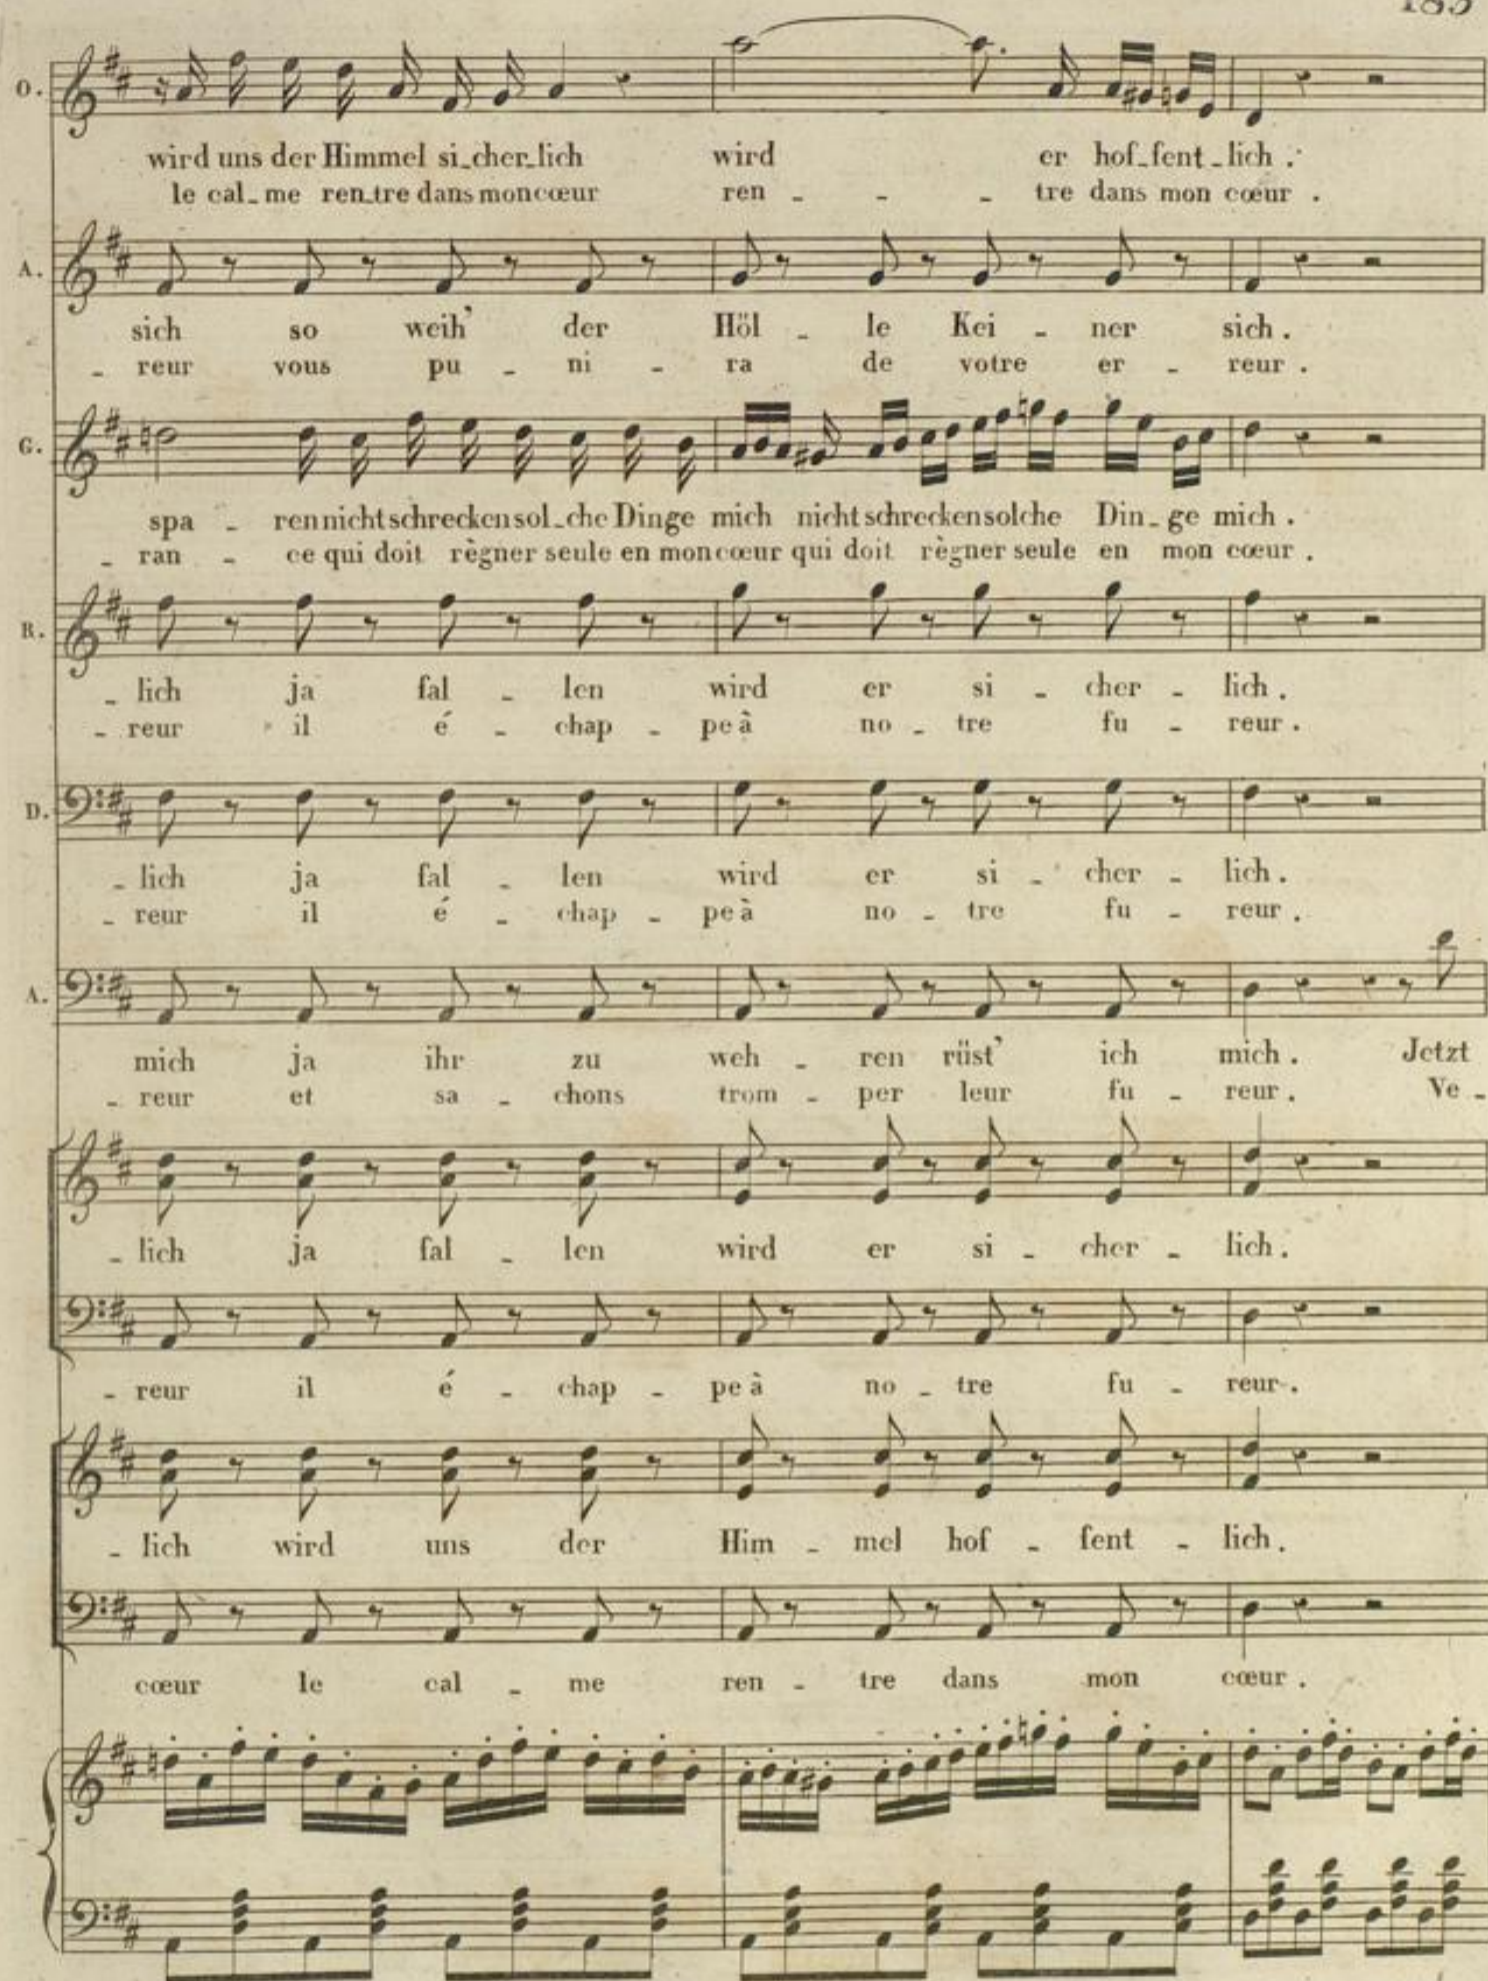 185
O.
wird uns der Himmel si_cher_lich wird er hof_fent_lich.
le cal_me ren_tre dans mon cœur ren - - - tre dans mon cœur.
A.
sich so weih' der Höl - le Kei - ner sich.
- reur vous pu - ni - ra de votre er - reur.
G.
spa - ren nicht schrecken sol_che Dinge mich nicht schrecken solche Din_ge mich.
- ran - ce qui doit règner seule en mon cœur qui doit règner seule en mon cœur.
R.
- lich ja fal - len wird er si - cher - lich.
- reur il é - chap - pe à no - tre fu - reur.
D.
- lich ja fal - len wird er si - cher - lich.
- reur il é - chap - pe à no - tre fu - reur.
A.
mich ja ihr zu weh - ren rüst' ich mich. Jetzt
- reur et sa - chons trom - per leur fu - reur. Ve -
- lich ja fal - len wird er si - cher - lich.
- reur il é - chap - pe à no - tre fu - reur.
- lich wird uns der Him - mel hof - fent - lich.
cœur le cal - me ren - tre dans mon cœur.